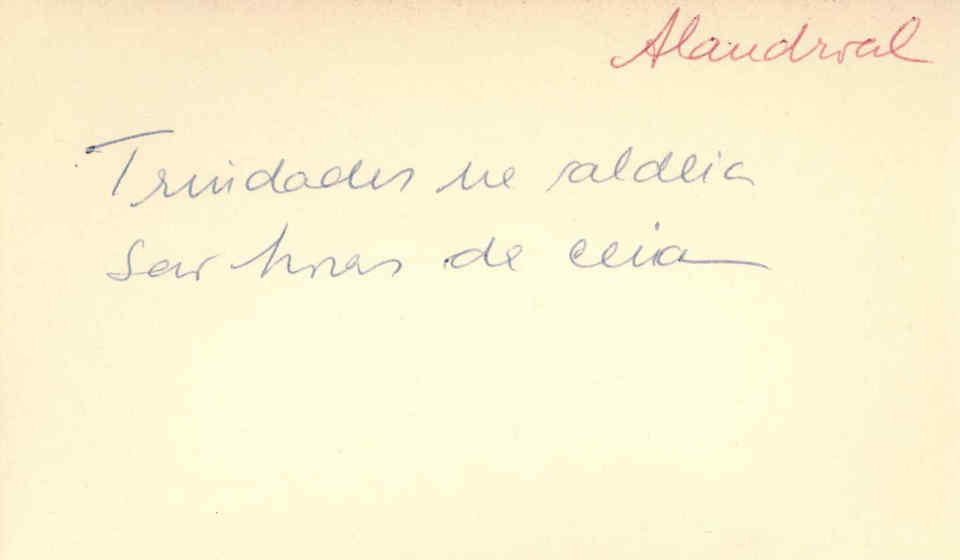 Alandroal
Trindades na aldeia
São horas de ceia